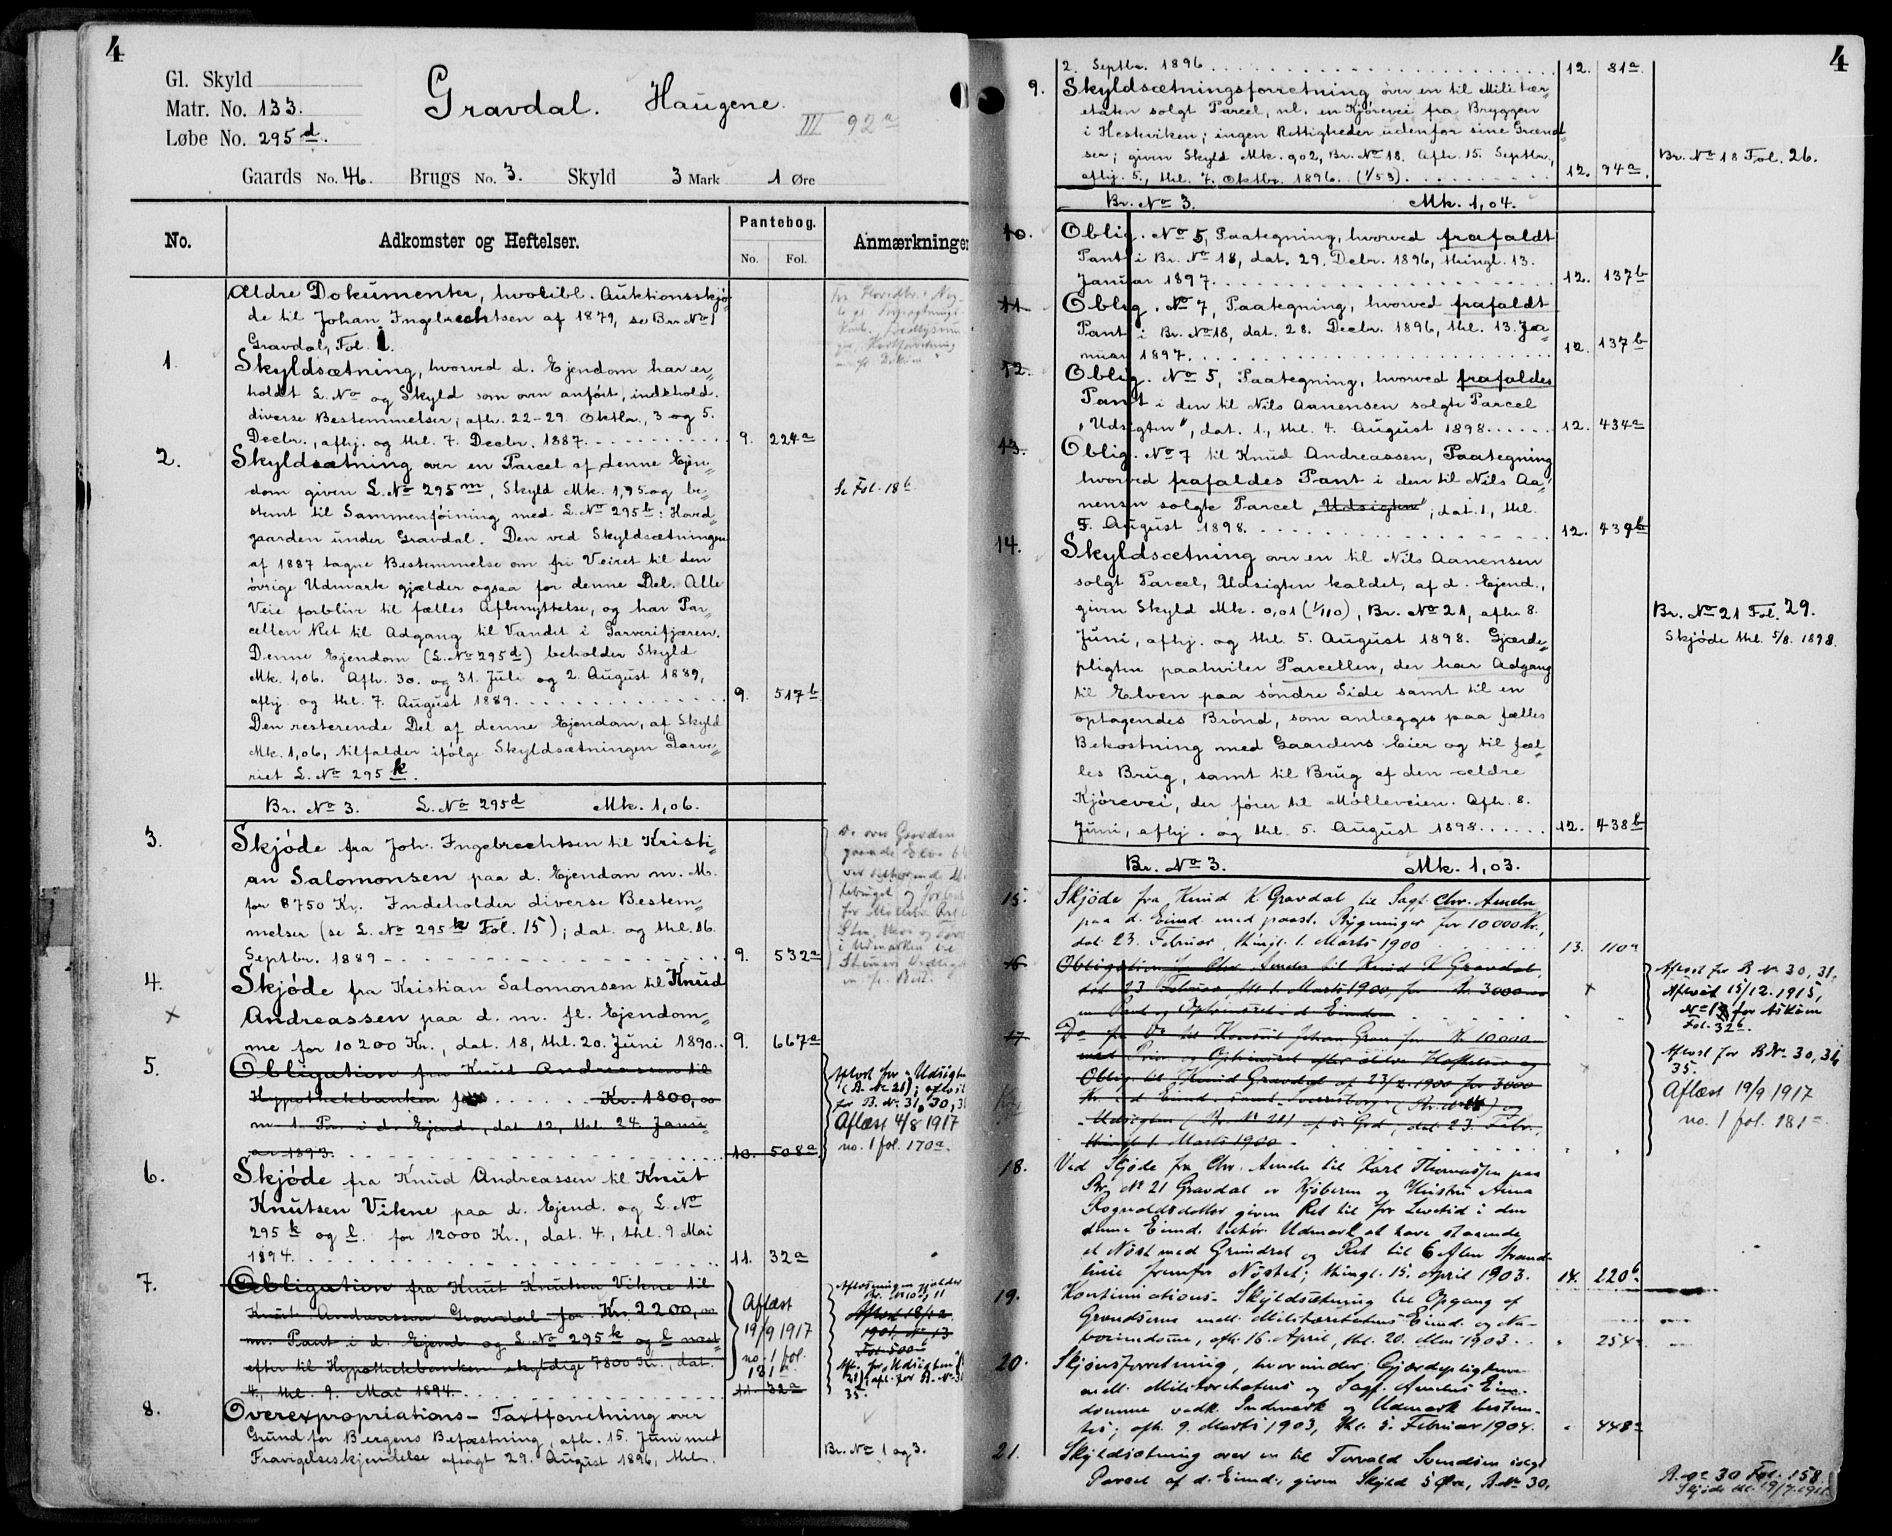 4
Gl. Skyld
Matr. No. 133.
Løbe No. 295 d.
Gravdal. Haugene.
III 92a
Gaards No. 46. Brugs No. 3. Skyld 3 Mark 1 Øre
No.
Adkomster og Heftelser.
Pantebog.
No. Fol.
Anmærkninger
Ældre Dokumenter, hvoribl. Auktionsskjø-
de til Johan Ingebrechtsen af 1879, se Br. No 1
Gravdal, Fol. 1.
1. Skyldsætning, hvorved d. Ejendom har er-
holdt L. No og Skyld som oven anført, indehold.
diverse Bestemmelser, afh. 22-29. Oktbr., 3 og 5.
Decbr., afhj. og thl. 7. Decbr. 1887. 9. 224a
2. Skyldsætning over en Parcel af denne Ejen-
dom given L. No 295 m, Skyld Mk. 1,95 og be-
Se Fol. 18b
stemt til Sammenføining med L. No 295 b: Hoved-
gaarden under Gravdal. Den ved Skyldsætningen
af 1887 tagne Bestemmelse om fri Veiret til den
øvrige Udmark gjælder ogsaa for denne Del. Alle
Veie forblive til fælles Afbenyttelse, og har Par-
cellen Ret til Adgang til Vandet i Garverifjæren.
Denne Ejendom (L. No 295 d) beholder Skyld
Mk. 1,06. Afh. 30. og 31. Juli og 2. August 1889,
afhj. og thl. 7. August 1889. 9. 517b
Den resterende Del af denne Ejendom, af Skyld
Mk. 1,06, tilfalder ifølge Skyldsætningen Garve-
riet L. No 295 k.
Br. No 3. L. No 295 d Mk. 1,06.
3. Skjøde fra Joh. Ingebrechtsen til Kristi-
an Salomonsen paa d. Ejendom m. M.
for 8750 Kr. Indeholder diverse Bestem-
melser (se L. No 295 k Fol. 15); dat. og thl. 16.
Septbr. 1889 9. 532a
4. Skjøde fra Kristian Salomonsen til Knud
Andreassen paa d. m. fl. Ejendom-
me for 10200 Kr., dat. 18, thl. 20. Juni 1890. 9. 667a
5. Obligation fra Knut Andreassen til
Hypothekbanken for Kr. 1800,00
m. 1. Pr. i d. Ejend., dat. 12, thl. 24. Janu-
ar 1893. 10. 508a
Aflæst 4/8 1917
no. 1 fol. 170a.
6. Skjøde fra Knud Andreassen til Knut
Knutsen Vikne paa d. Ejend. og L. No
295 k og l. for 12000 Kr., dat. 4., thl. 9 Mai
1894. 11. 32a
7. Obligation fra Knut Knutsen Vikne til
Knut Andreassen Gravdal for Kr. 2200,00
m. Pant i d. Ejend. og L. No 295 k og l næst
efter til Hypothekbanken skyldige 7800 Kr., dat.
4., thl. 9. Mai 1894. 11. 32a
Aflæst
19/9 1917
no. 1 fol.
181a
8. Overexpropriations-Taxtforretning over
Grund for Bergens Befæstning, afh. 15. Juni med
Fravigelseskjendelse afsagt 29. August 1896, thl.
Br. No 1 og 3.
4
2. Septbr. 1896 12. 81a.
9. Skyldsætningsforretning over en til Militær-
etaten solgt Parcel, nl. en Kjørevei fra Bryggen
i Hestviken; ingen Rettigheder udenfor sine Grænd-
ser; given Skyld Mk. 0,02, Br. No 18. Afh. 15. Septbr.,
afhj. 5., thl. 7. Oktbr. 1896. (1/53) 12. 94a.
Br. No 18 Fol. 26.
Br. No 3. Mk. 1,04.
10. Oblig. No 5, Paategning, hvorved frafaldt
Pant i Br. No 18, dat. 29. Debr. 1896, thingl. 13.
Januar 1897. 12. 137b
11 Oblig. No 7, Paategning, hvorved frafaldt
Pant i Br. No 18, dat. 28. Decbr. 1896, thl. 13. Ja-
nuar 1897. 12. 137b
12. Oblig. No 5, Paategning, hvorved frafaldes
Pant i den til Nils Aanensen solgte Parcel
„Udsigten", dat. 1., thl. 4. August 1898. 12. 434a
13. Oblig. No 7 til Knud Andreassen, Paategning
hvorved frafaldes Pant i den til Nils Aa-
nensen solgte Parcel „Udsigten"; dat. 1., thl.
5. August 1898. 12. 439b
14. Skyldsætning over en til Nils Aanensen
solgt Parcel, Udsigten kaldet, af d. Ejend.,
given Skyld Mk. 0,01 (1/110), Br. No 21, afh. 8.
Br. No 21 Fol. 29.
Juni, afhj. og thl. 5. August 1898. Gjærde-
Skjøde thl. 5/8. 1898.
pligten paahviler Parcellen, der har Adgang
til Elven paa søndre Side samt til en
optagendes Brønd, som anlægges paa fælles
Bekostning med Gaardens Eier og til fæl-
les Brug, samt til Brug af den ældre
Kjørevei, der fører til Mølleveien. Afh. 8.
Juni, afhj. og thl. 5. August 1898. 12. 438b
Br. No 3. Mk. 1,03.
15. Skjøde fra Knud K Gravdal til Sagf. Chr. Ameln
paa d. Eiend. med paast. Bygninger for 10 000 Kr.,
dat. 23. Februar, thingl. 1. Marts 1900 13. 110a
16 Obligation fra Chr. Ameln til Knud K Gravdal,
dat. 23 Februar, thl. 1. Marts 1900, for Kr. 3000
Aflæst 15/12. 1915,
17 Do fra Do til Konsul Johan Gran for Kr 10 000
med Prior. og Oprinret efter ældre Heftelser og
Oblig. til Knud Gravdal af 23/2. 1900 for 3000
Udsigten (Br. No 21) dat. 23. Febr.,
thingl. 1. Marts 1900.
Aflæst 19/9 1917
no. 1 fol. 181a
18. Ved Skjøde fra Chr. Ameln til Karl Thomassen paa
Br. No 21 Gravdal er Kjøberen og Hustru Anna
Rognaldsdatter given Ret til for Levetid i den
denne Eiend. tilhør. Udmark at have staaende
et Nøst med Grundret og Ret til 6 Alen Strand-
linie fremfor Nøstet; thingl. 15. April 1903. 14. 220b
19. Kontinuations-Skyldsætning til Opgang af
Grændserne mell. Militæretatens Eiend. og Na-
boeiendome, afh. 16. April, thl. 20. Mai 1903. „ 254a
20. Skjønsforretning, hvorunder Gjærdepligten
mell. Militæretatens og Sagf. Amelns Eien-
domme vedk. Indmark og Udmark bestem-
tes; afh. 9. Marts 1903, thl. 5. Februar 1904. „ 448a
21. Skyldsætning over en til Torvald Svendsen solgt
Parcel af d. Eiend., given Skyld 5 Øre, B. No 30,
B. no 30 Fol. 158.